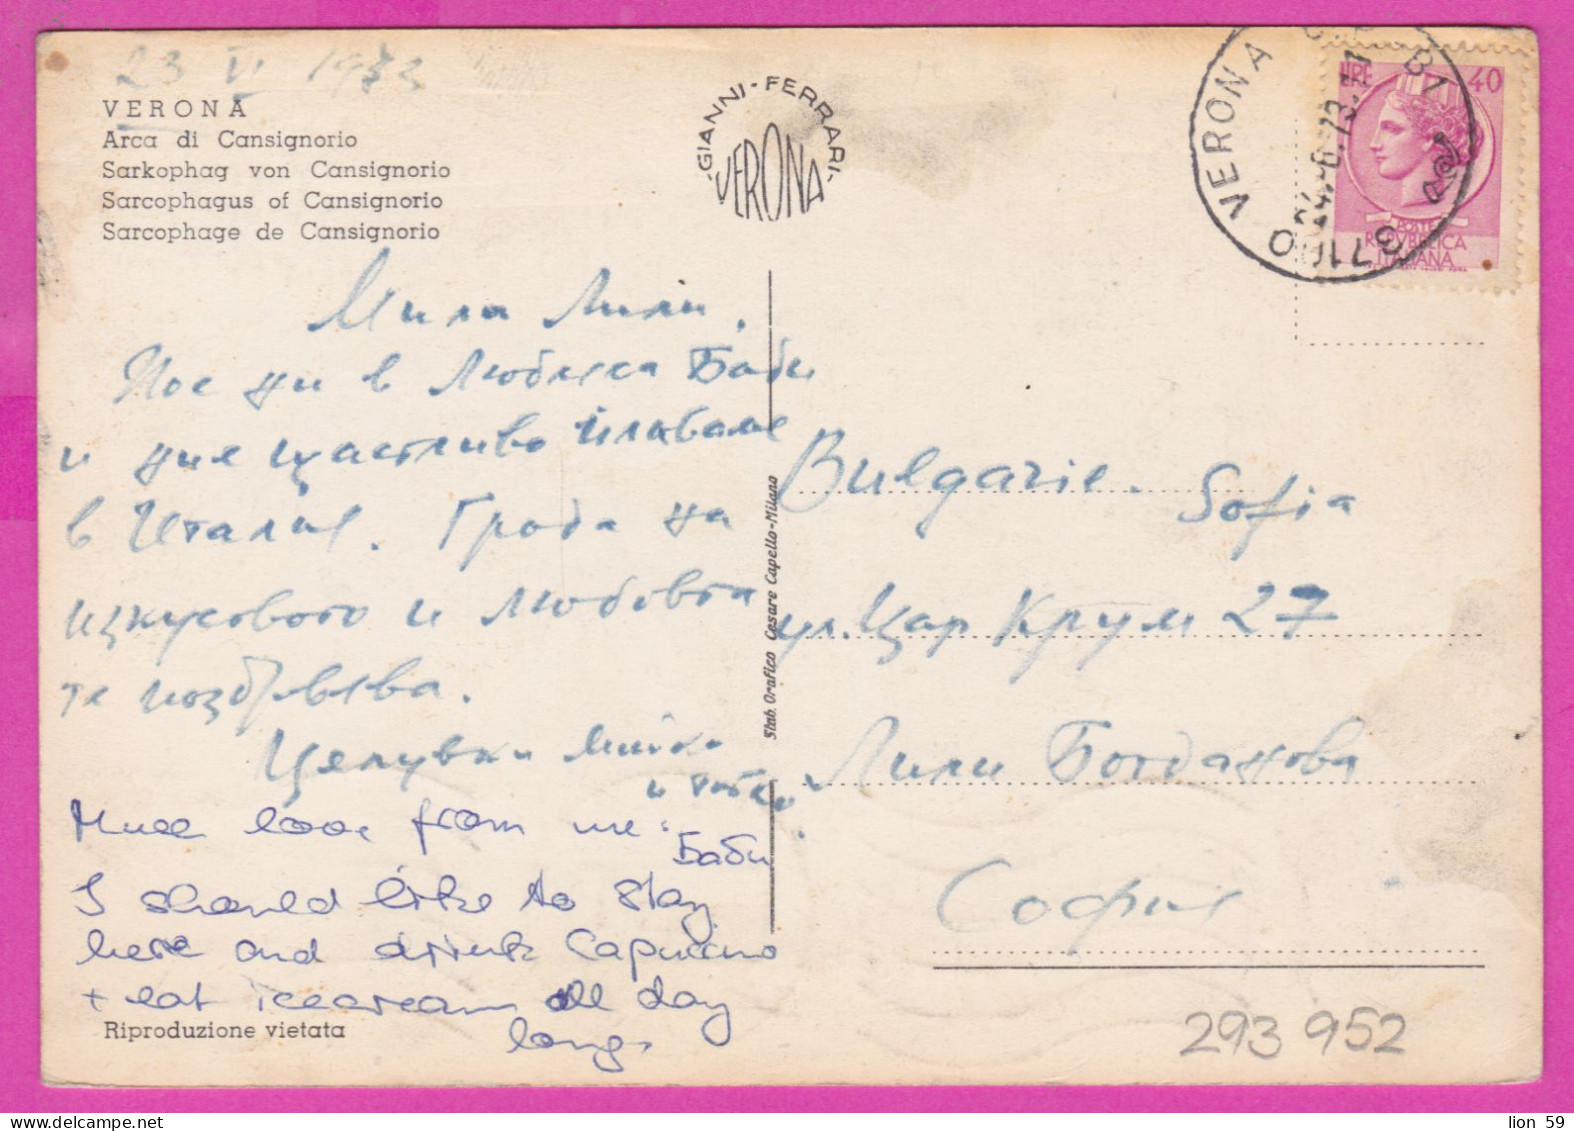 23 VI 1973
VERONA
Arca di Cansignorio
Sarkophag von Cansignorio
Sarcophagus of Cansignorio
Sarcophage de Cansignorio
GIANNI-FERRARI
VERONA
VERONA
37100
24.-6.73.-11
LIRE 40
POSTE
REPVBBLICA
ITALIANA
Мила Лили,
Пое ни в Любляна Баби
и ние щастливо плуваме
в Италия. Града на
изкуството и любовта
те поздравява.
Целувки Мишка
и
Much love from me.
Баби
I should like to stay
here and drink Capuccino
+ eat icecream all day
long.
Riproduzione vietata
Stab. Grafico Cesare Capello-Milano
Bulgarie. Sofia
ул. Цар Крум 27
Лили Богданова
София
293 952
lion 59